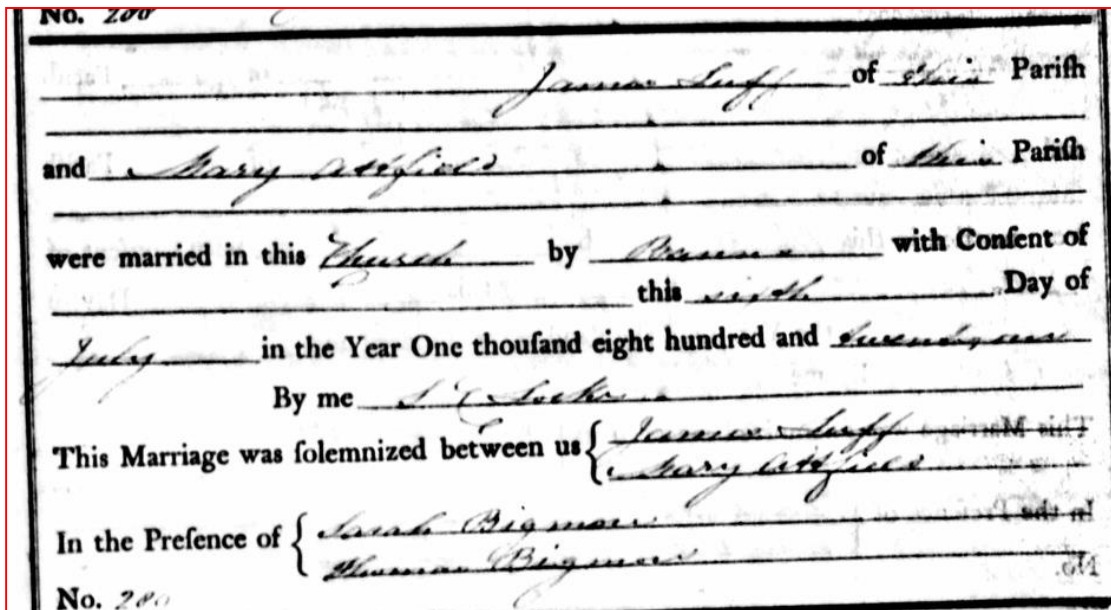 No. 288
James Luff of this Pariſh
and Mary Attfield of this Pariſh
were married in this Church by Banns with Conſent of
this sixth Day of
July in the Year One thouſand eight hundred and twenty one
By me
This Marriage was ſolemnized between us { James Luff
Mary Attfield
In the Preſence of { Sarah Bigmore
Thomas Bigmore
No. 289